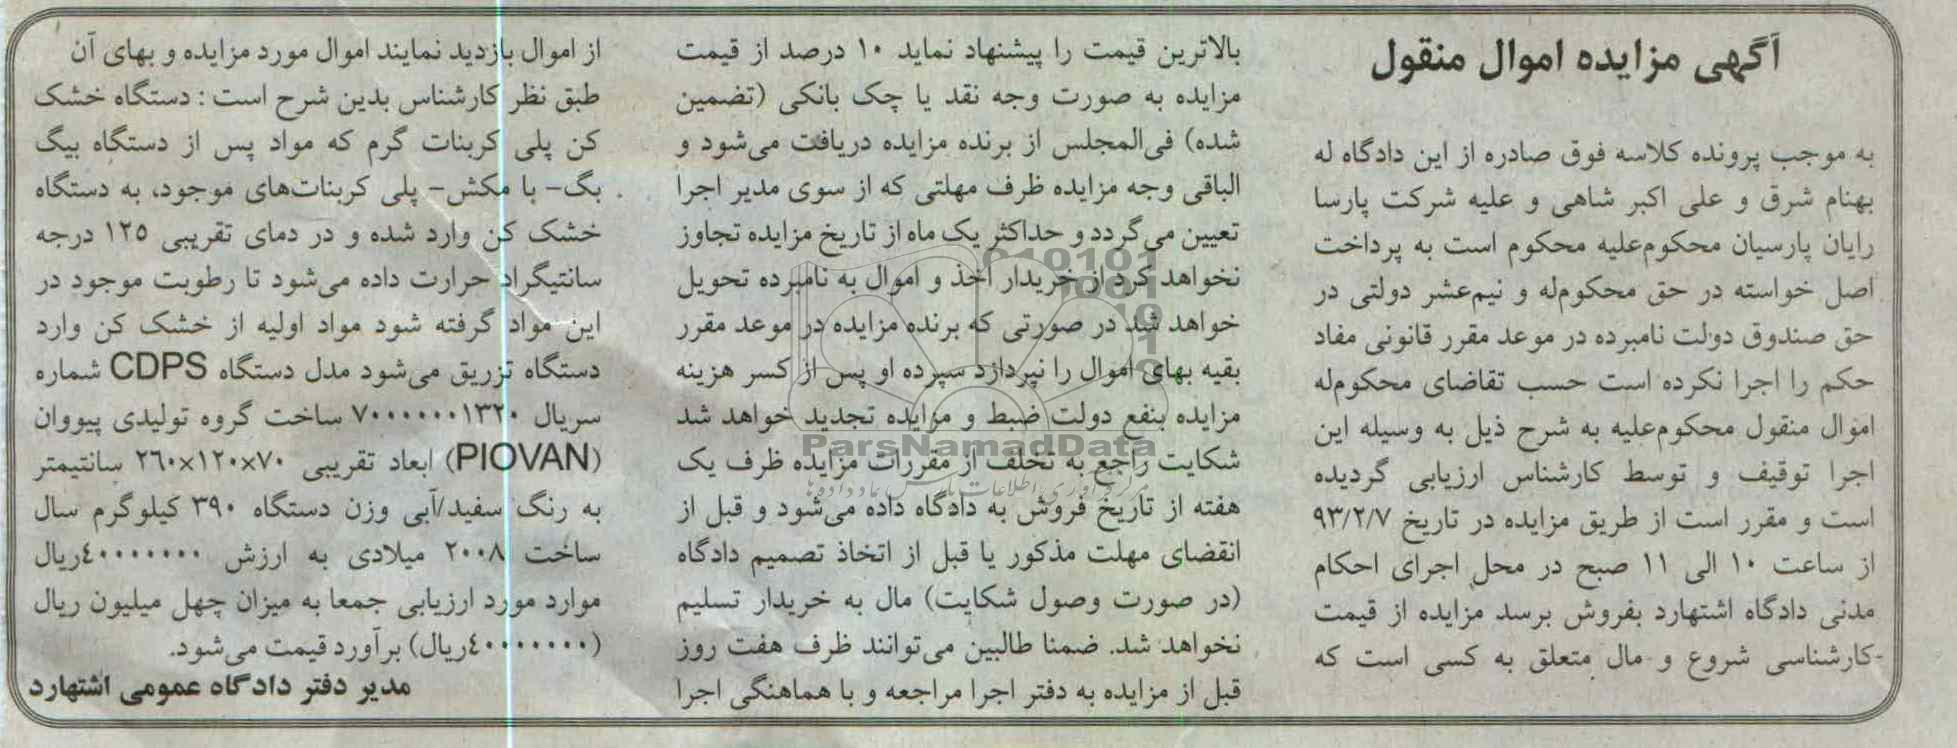 آگهی مزایده اموال منقول
به موجب پرونده کلاسه فوق صادره از این دادگاه له
بهنام شرق و علی اکبر شاهی و علیه شرکت پارسا
رایان پارسیان محکوم‌علیه محکوم است به پرداخت
اصل خواسته در حق محکوم‌له و نیم‌عشر دولتی در
حق صندوق دولت نامبرده در موعد مقرر قانونی مفاد
حکم را اجرا نکرده است حسب تقاضای محکوم‌له
اموال منقول محکوم‌علیه به شرح ذیل به وسیله این
اجرا توقیف و توسط کارشناس ارزیابی گردیده
است و مقرر است از طریق مزایده در تاریخ ۹۳/۲/۷
از ساعت ۱۰ الی ۱۱ صبح در محل اجرای احکام
مدنی دادگاه اشتهارد بفروش برسد مزایده از قیمت
کارشناسی شروع و مال متعلق به کسی است که
بالاترین قیمت را پیشنهاد نماید ۱۰ درصد از قیمت
مزایده به صورت وجه نقد یا چک بانکی (تضمین
شده) فی‌المجلس از برنده مزایده دریافت می‌شود و
الباقی وجه مزایده ظرف مهلتی که از سوی مدیر اجرا
تعیین می‌گردد و حداکثر یک ماه از تاریخ مزایده تجاوز
نخواهد کرد از خریدار اخذ و اموال به نامبرده تحویل
خواهد شد در صورتی که برنده مزایده در موعد مقرر
بقیه بهای اموال را نپردازد سپرده او پس از کسر هزینه
مزایده بنفع دولت ضبط و مزایده تجدید خواهد شد
شکایت راجع به تخلف از مقررات مزایده ظرف یک
هفته از تاریخ فروش به دادگاه داده می‌شود و قبل از
انقضای مهلت مذکور یا قبل از اتخاذ تصمیم دادگاه
(در صورت وصول شکایت) مال به خریدار تسلیم
نخواهد شد. ضمنا طالبین می‌توانند ظرف هفت روز
قبل از مزایده به دفتر اجرا مراجعه و با هماهنگی اجرا
از اموال بازدید نمایند اموال مورد مزایده و بهای آن
طبق نظر کارشناس بدین شرح است : دستگاه خشک
کن پلی کربنات گرم که مواد پس از دستگاه بیگ
بگ- با مکش- پلی کربنات‌های موجود، به دستگاه
خشک کن وارد شده و در دمای تقریبی ۱۲۵ درجه
سانتیگراد حرارت داده می‌شود تا رطوبت موجود در
این مواد گرفته شود مواد اولیه از خشک کن وارد
دستگاه تزریق می‌شود مدل دستگاه CDPS شماره
سریال ۷۰۰۰۰۰۰۱۳۲۰ ساخت گروه تولیدی پیووان
(PIOVAN) ابعاد تقریبی ۷۰×۱۲۰×۲۶۰ سانتیمتر
به رنگ سفید/آبی وزن دستگاه ۳۹۰ کیلوگرم سال
ساخت ۲۰۰۸ میلادی به ارزش ۴۰۰۰۰۰۰۰ریال
موارد مورد ارزیابی جمعا به میزان چهل میلیون ریال
(۴۰۰۰۰۰۰۰ریال) برآورد قیمت می‌شود.
مدیر دفتر دادگاه عمومی اشتهارد
ParsNamadData